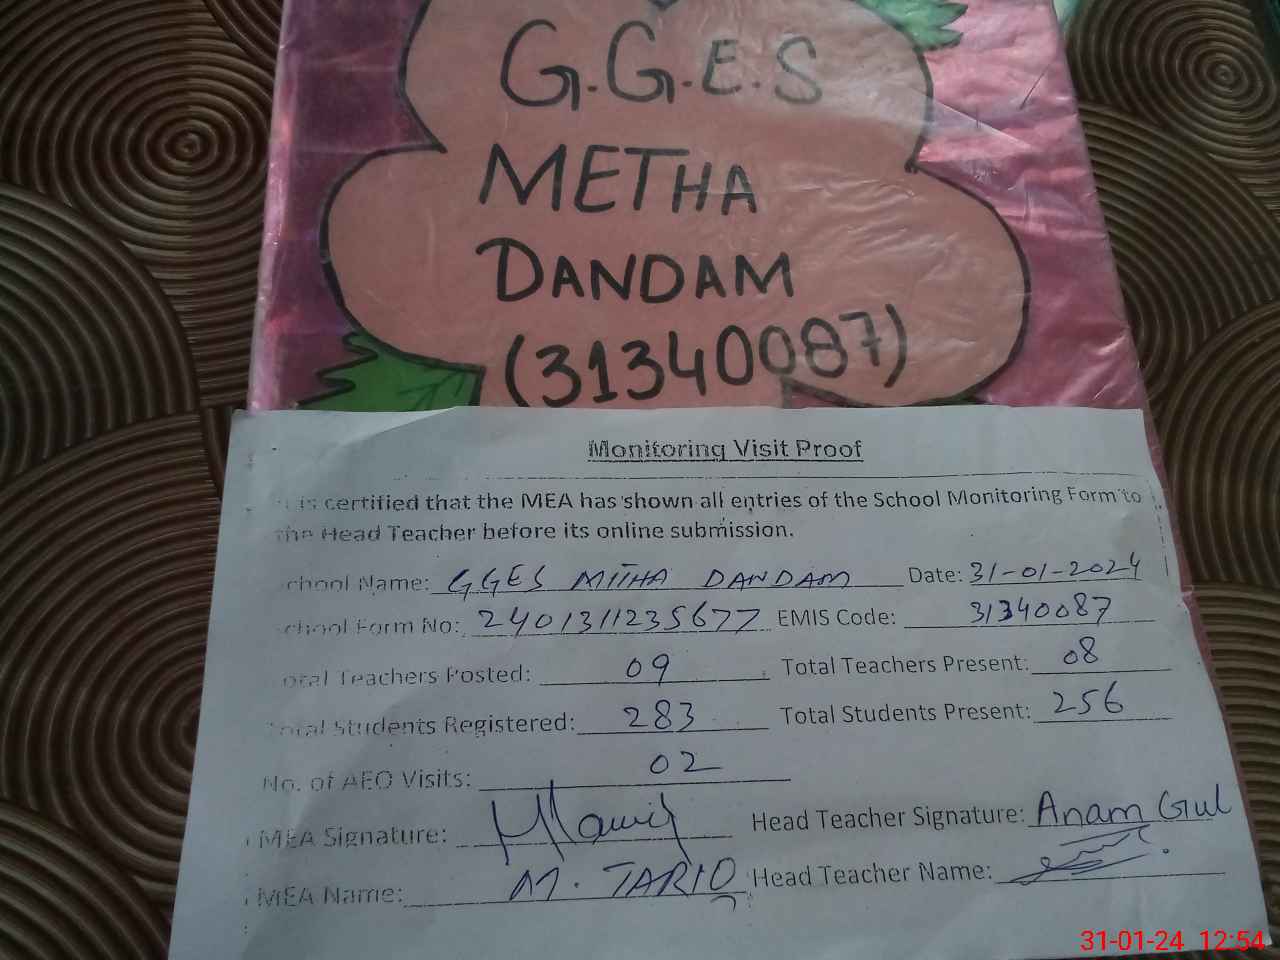 G.G.E.S
METHA
DANDAM
(31340087)
Monitoring Visit Proof
is certified that the MEA has shown all entries of the School Monitoring Form to
the Head Teacher before its online submission.
chool Name: GGES MITHA DANDAM Date: 31-01-2024
chool Form No: 2401311235677 EMIS Code: 31340087
otal Teachers Posted: 09 Total Teachers Present: 08
otal Students Registered: 283 Total Students Present: 256
No. of AEO Visits: 02
MEA Signature: Head Teacher Signature: Anam Gul
MEA Name: M. TARIQ Head Teacher Name:
31-01-24 12:54